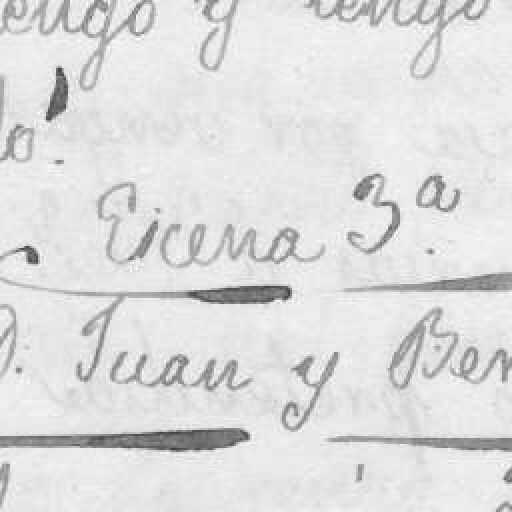 y tengo
lo!
Eicena 3ª.
D. Juan y Ben